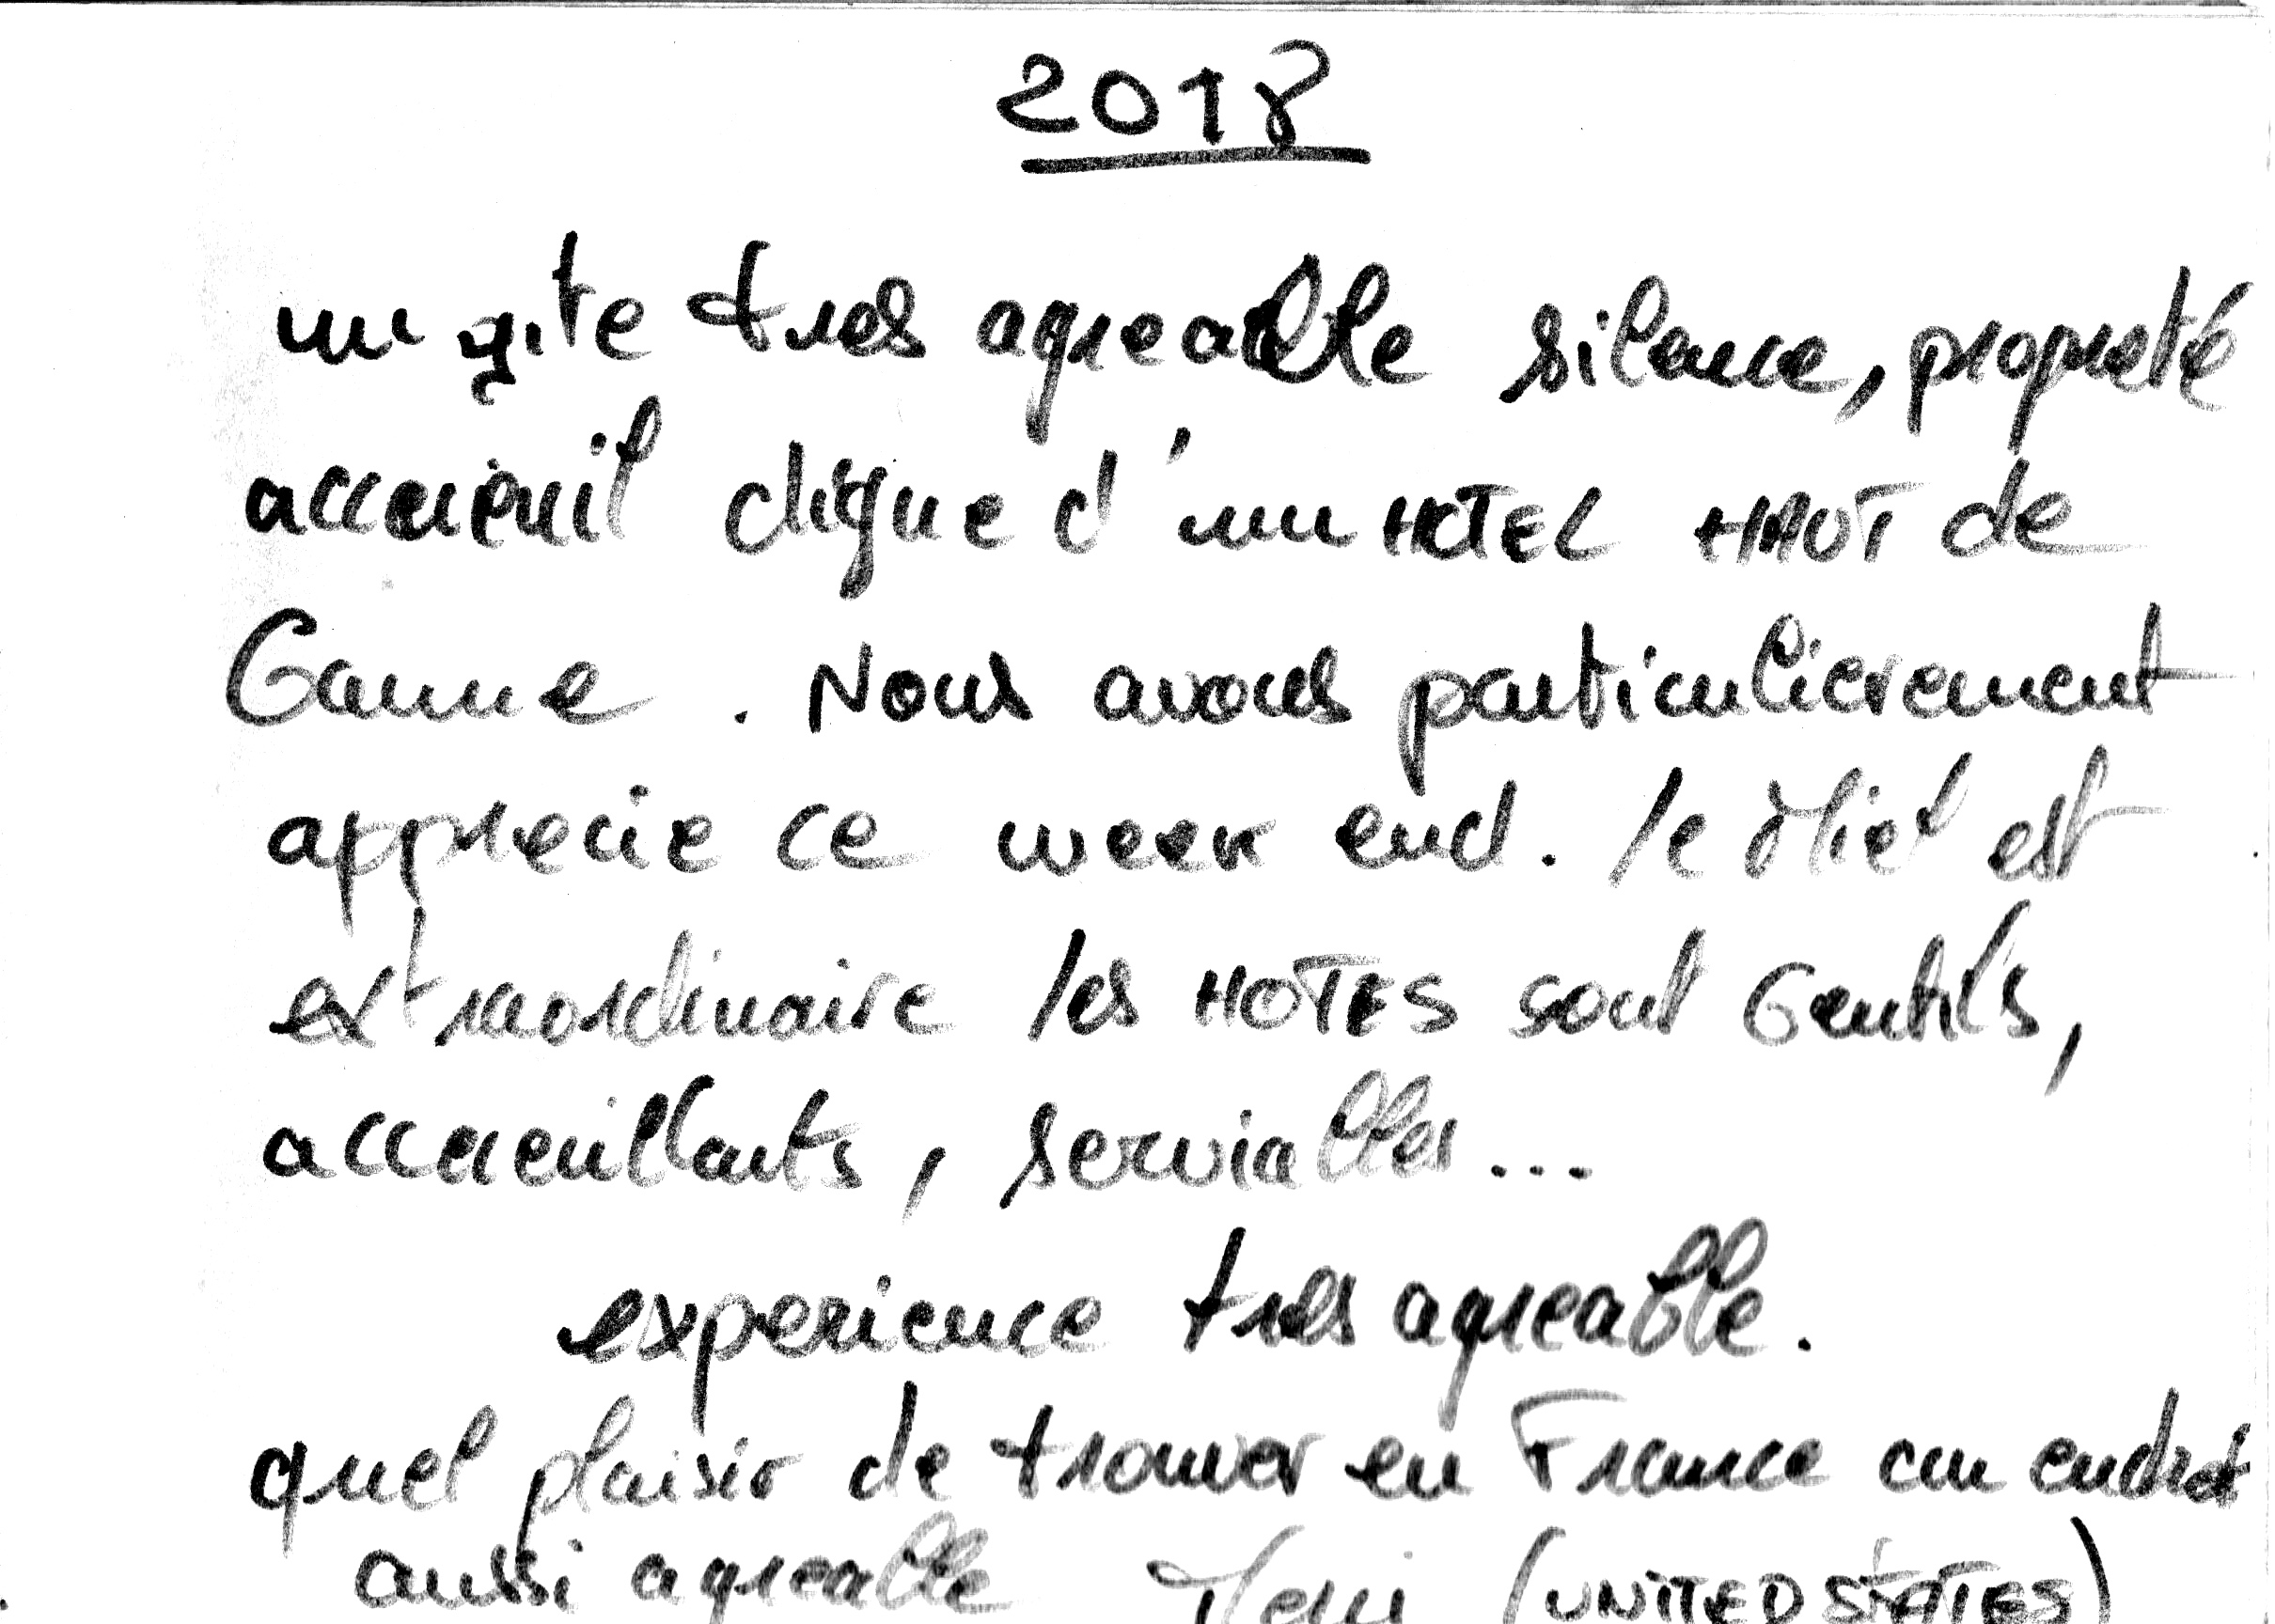 2018
un gite tres agreable silence, propreté
accueuil digne d'un HOTEL HAUT de
Gamme. Nous avons particulierement
apprecie ce week end. le est
extraordinaire les HOTES sont Gentils,
accueuillants, serviables...
experience tres agreable.
quel plaisir de trouver en France un endroit
aussi agreable (UNITED STATES)